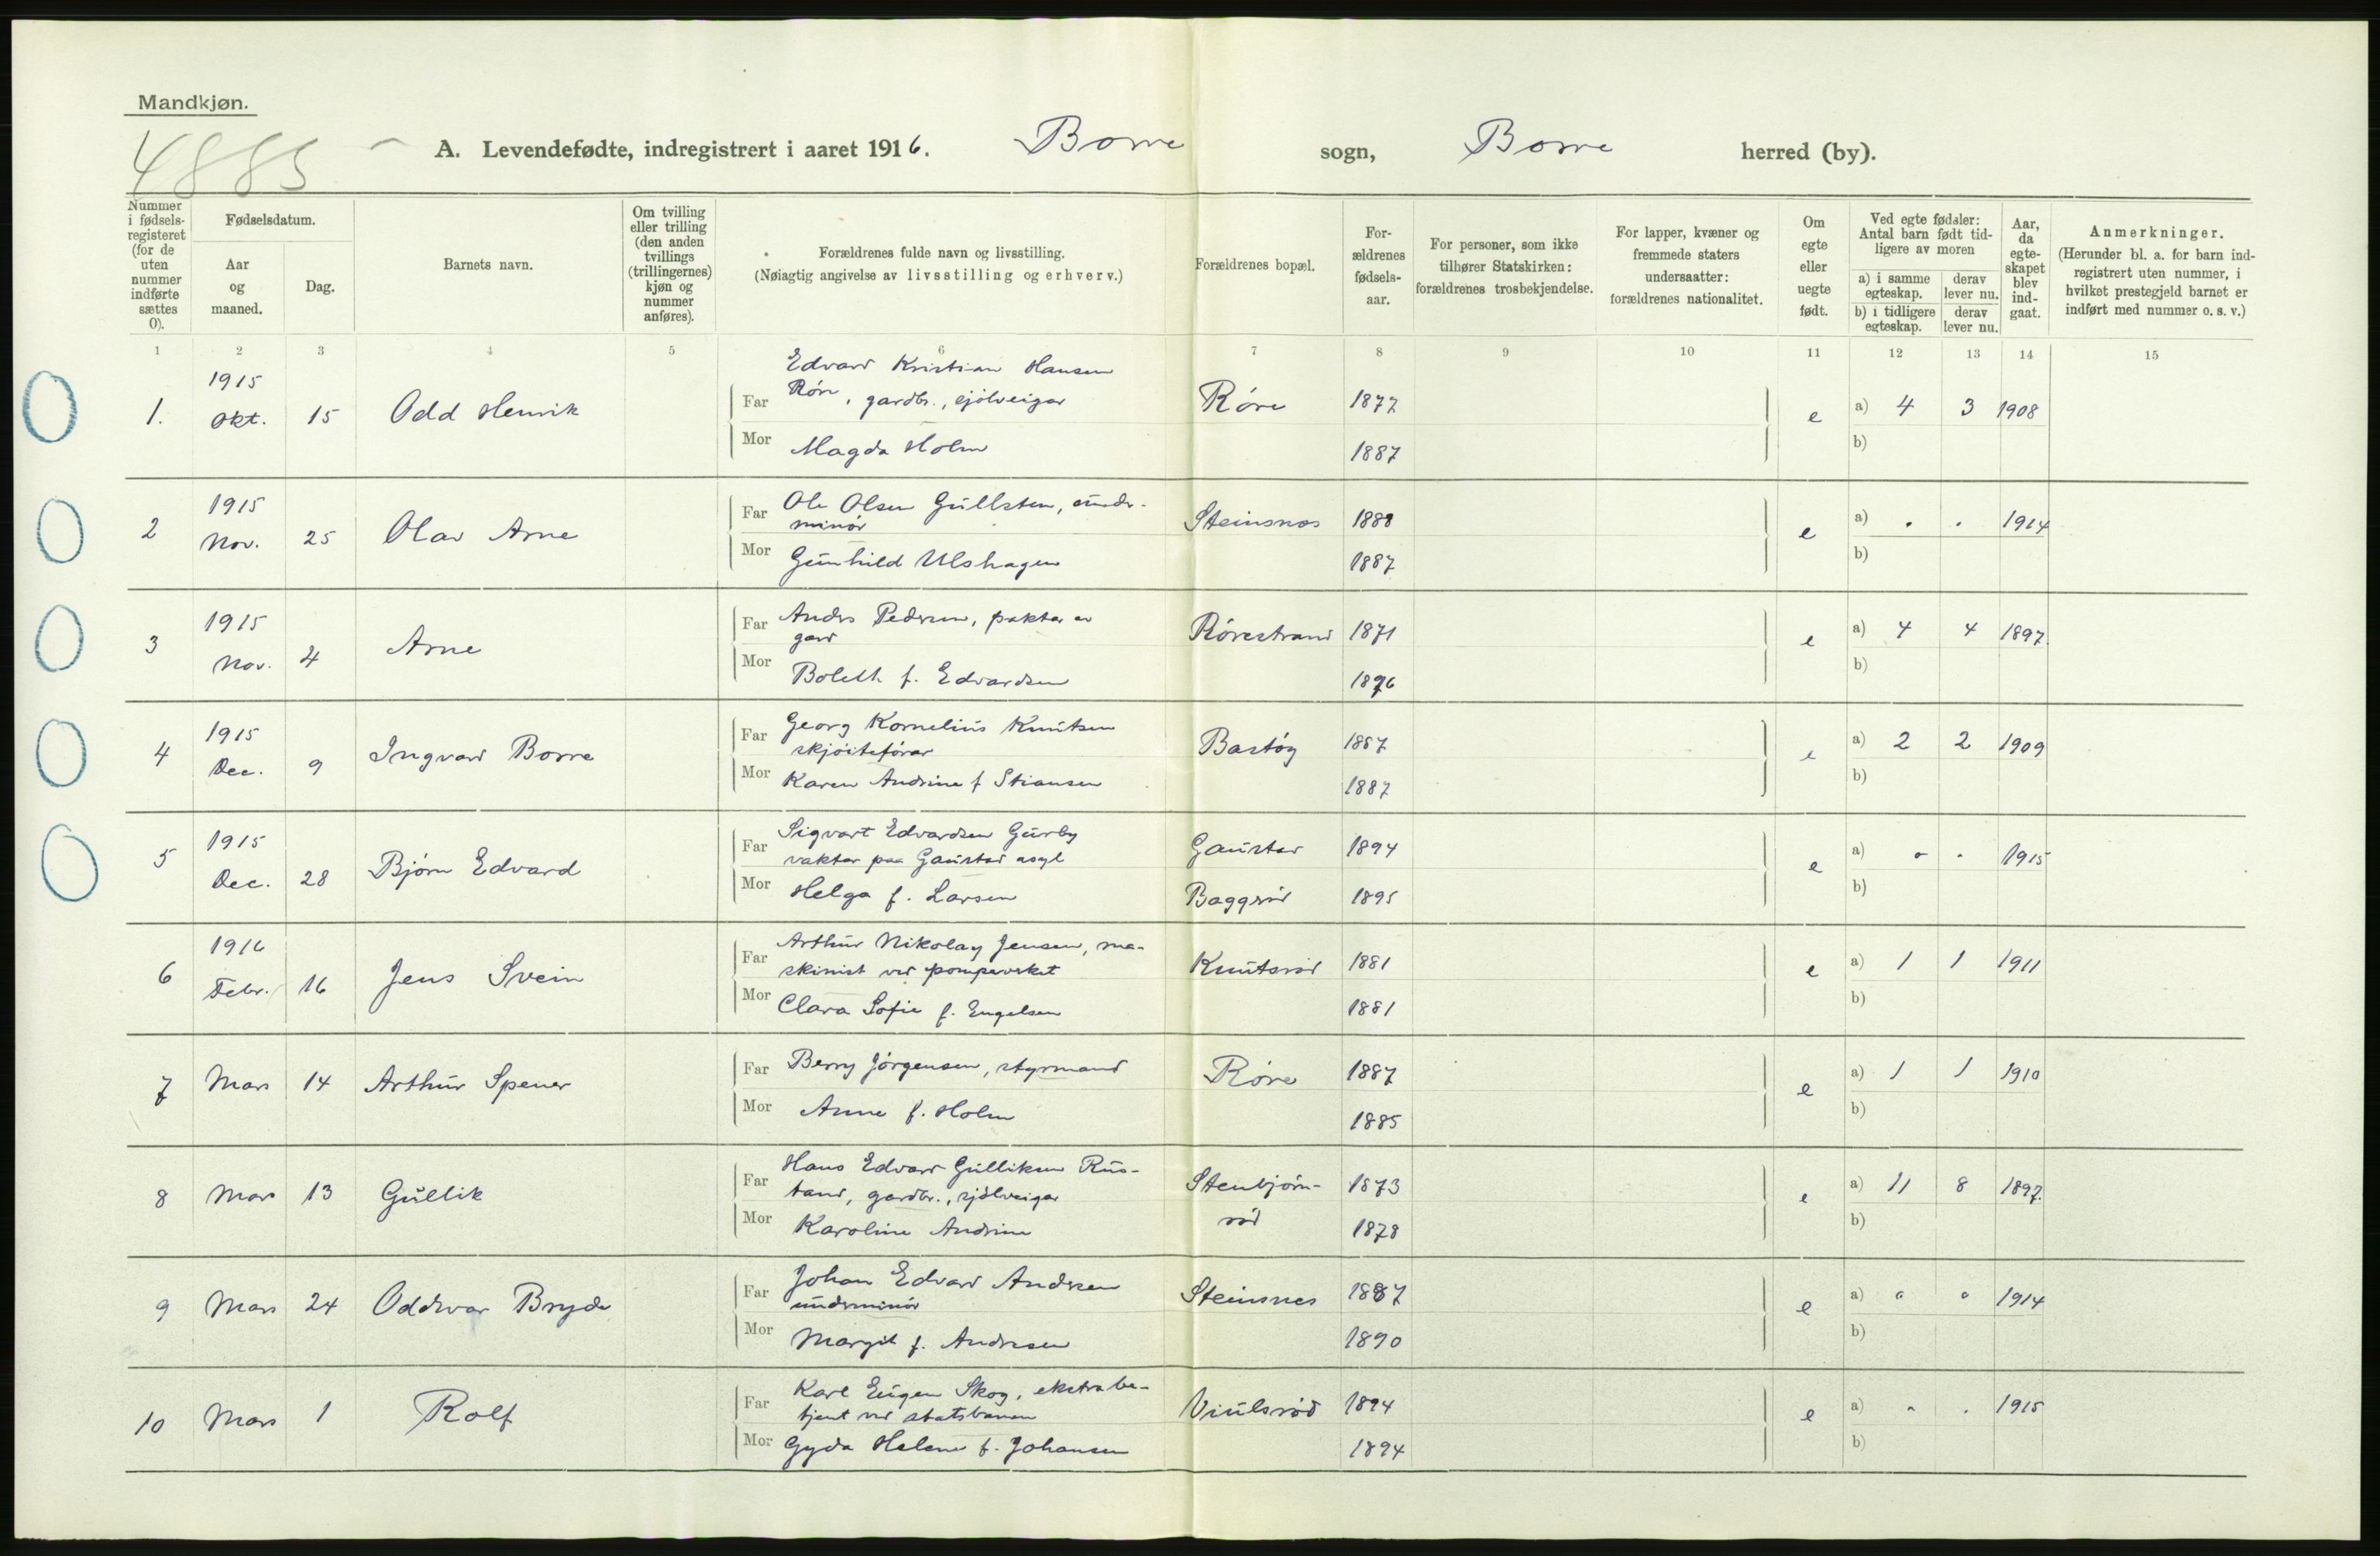 Mandkjøn.
4885
A. Levendefødte, indregistrert i aaret 1916. Borre sogn, Borre herred (by).
Nummer i fødsels-registeret (for de uten nummer indførte sættes 0).
Fødselsdatum.
Aar og maaned.
Dag.
Barnets navn.
Om tvilling eller trilling (den anden tvillings (trillingernes) kjøn og nummer anføres).
Forældrenes fulde navn og livsstilling.
(Nøiagtig angivelse av livsstilling og erhverv.)
Forældrenes bopæl.
For-ældrenes fødsels-aar.
For personer, som ikke tilhører Statskirken: forældrenes trosbekjendelse.
For lapper, kvæner og fremmede staters undersaatter: forældrenes nationalitet.
Om egte eller uegte født.
Ved egte fødsler: Antal barn født tid-ligere av moren
a) i samme egteskap. derav lever nu.
b) i tidligere egteskap. derav lever nu.
Aar, da egte-skapet blev ind-gaat.
Anmerkninger.
(Herunder bl. a. for barn ind-registrert uten nummer, i hvilket prestegjeld barnet er indført med nummer o. s. v.)
1 2 3 4 5 6 7 8 9 10 11 12 13 14 15
1. 1915 Okt. 15 Odd Henrik
Far Edvard Kristian Hansen
Röre, gardbr., sjölveigar Röre 1877 e a) 4 3 1908
Mor Magda Holm 1887 b)
2 1915 Nov. 25 Olav Arne
Far Ole Olsen Gullsten, under-
minör Steinsnes 1888 e a) " " 1914
Mor Gunhild Ulshagen 1887 b)
3 1915 Nov. 4 Arne
Far Anders Pedersen, paktar av
gard Rörestrand 1871 e a) 4 4 1897.
Mor Boleth f. Edvardsen 1876 b)
4 1915 Dec. 9 Ingvard Borre
Far Georg Kornelius Knutsen
skjöiteförar Bastöy 1887 e a) 2 2 1909
Mor Karen Andrine f Stiansen 1887 b)
5 1915 Dec. 28 Björn Edvard
Far Sigvart Edvardsen Gurby
vaktar paa Gaustad asyl Gaustad 1894 e a) " " 1915
Mor Helga f. Larsen Baggeröd 1895 b)
6 1916 Febr. 16 Jens Svein
Far Arthur Nikolay Jensen, ma-
skinist ved pompeverket Knutsröd 1881 e a) 1 1 1911
Mor Clara Sofie f. Engelsen 1881 b)
7 Mars 14 Arthur Spener
Far Berny Jörgensen, styrmand Röre 1887 e a) 1 1 1910
Mor Anne f. Holm 1885 b)
8 Mars 13 Gullik
Far Hans Edvard Gulliksen Rus-
tand, gardbr., sjölveigar Stenbjörn- 1873 e a) 11 8 1897.
Mor Karoline Andrine röd 1878 b)
9 Mars 24 Oddvar Bryde
Far Johan Edvard Andresen
underminör Steinsnes 1887 e a) " " 1914
Mor Margit f. Andresen 1890 b)
10 Mars 1 Rolf
Far Karl Eugen Skog, ekstrabe-
tjent ved statsbanen Viulsröd 1894 e a) " " 1915
Mor Gyda Helene f. Johansen 1894 b)